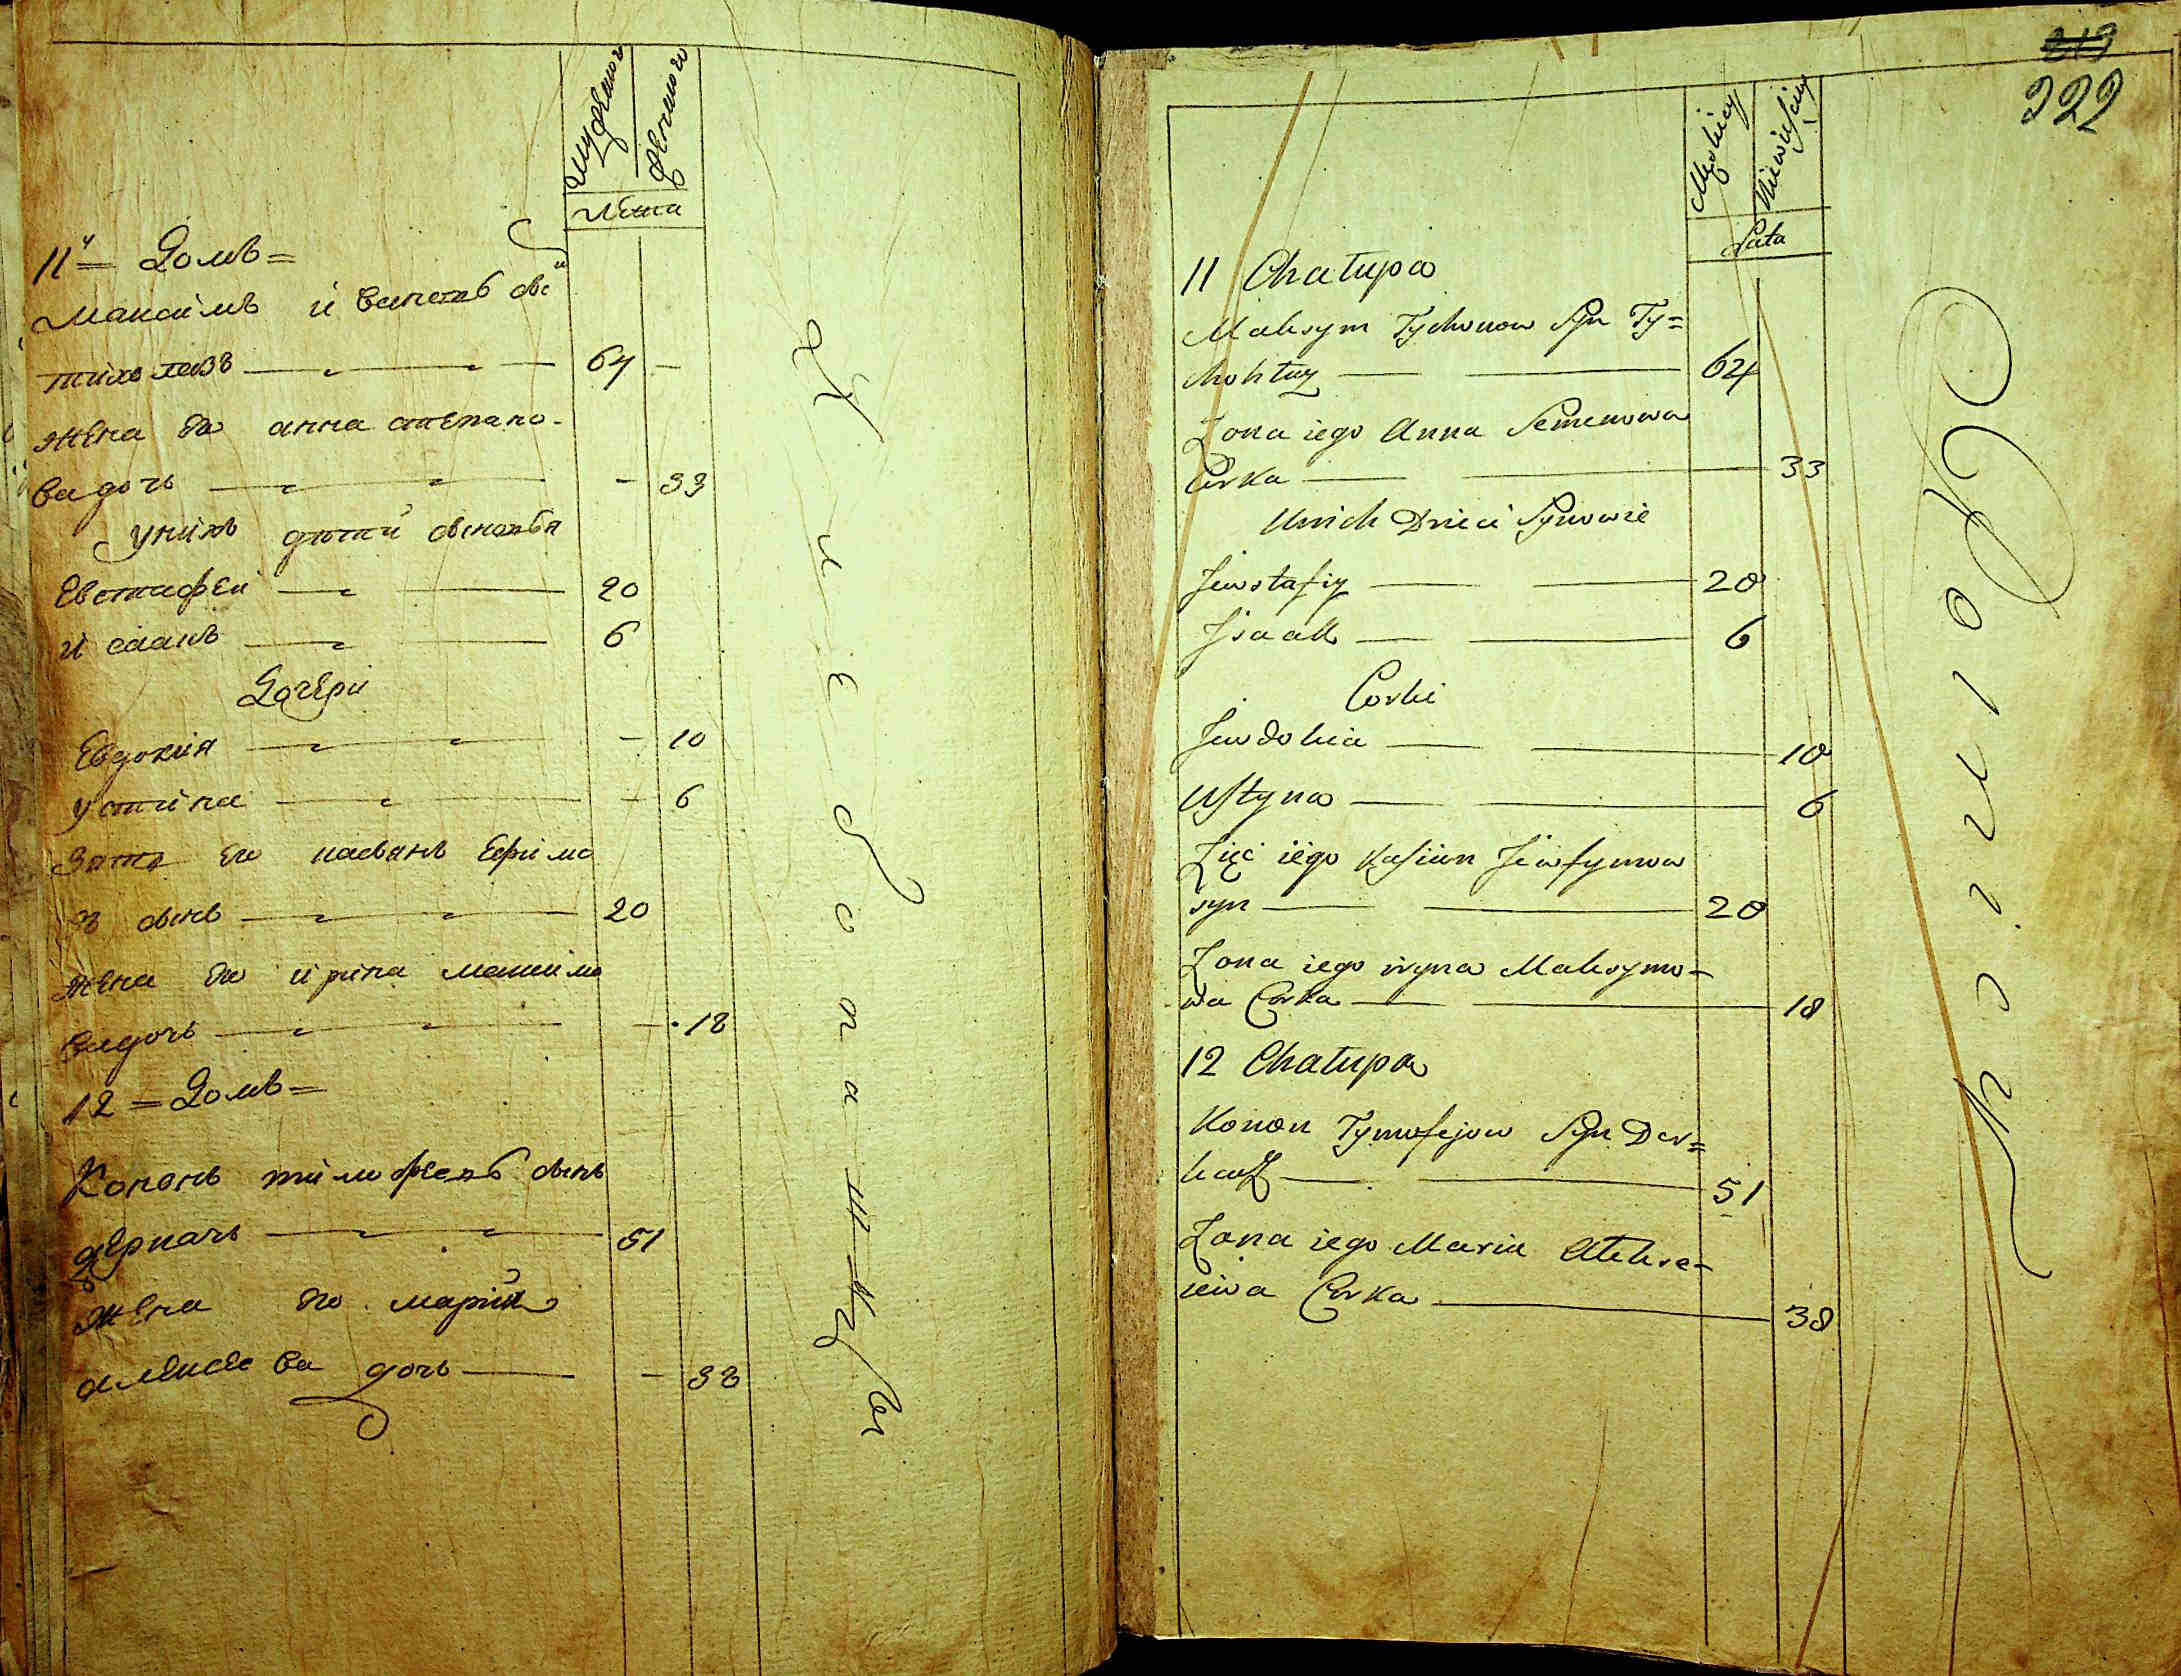 мужеска
женска
лета
11й Домъ
Максимъ
64 -
жена его анна степано-
ва дочь - 33
у нихъ дети сыновья
Евстафей 20
исаакъ 6
Дочери
Евдокия - 10
устина - 6
зять его касьянъ Ефимо
въ сынъ 20
жена его ирина максимо
ва дочь - 18
12 = Домъ =
Конанъ тимофеевъ сынъ
деркачь 51
жена его мария
алексеева дочь - 38
319
222
Męskiey
Niewieściey
Lata
11 Chałupa
Maksym Tychonow Syn Ty=
64
Żona iego Anna Semenowa
Corka 33
Unich Dzieci Synowie
Jewstafiy 20
Jsaak 6
Corki
Jewdokia 10
Ustyna 6
Zięć iego Kasian Jewfymow
syn 20
Żona iego iryna Maksymo-
wa Corka 18
12 Chałupa
Konon Tymofejow Syn Der=
kacz 51
Żona iego Maria Alekse-
iewa Corka 38